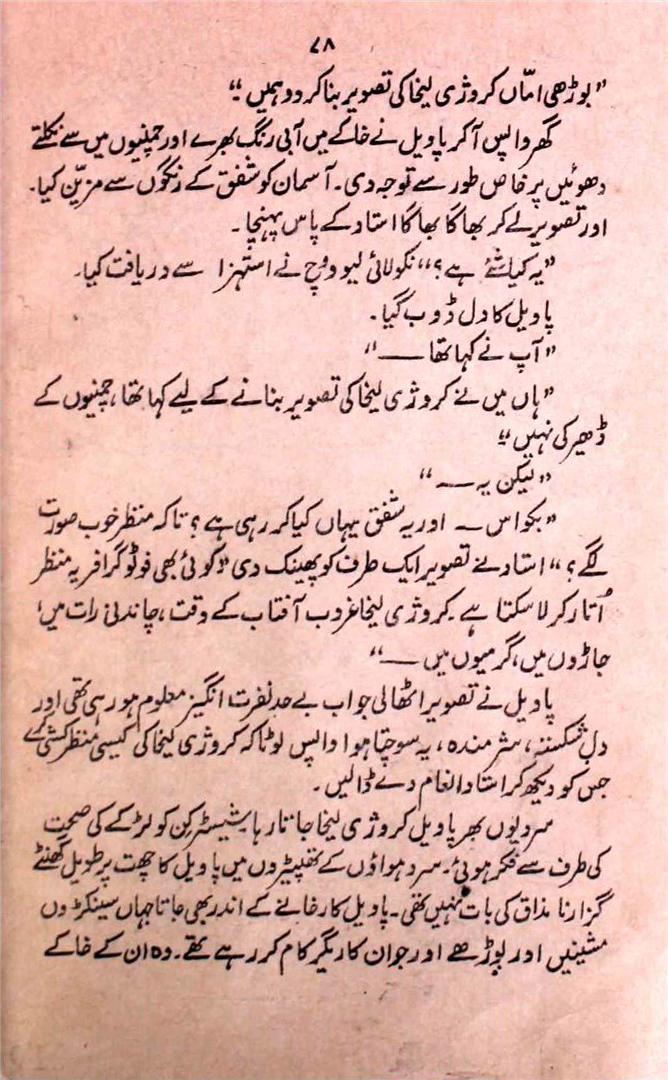 ۷۸
”بوڑھی امّاں کروژی لیخا کی تصویر بنا کر دو ہمیں۔“
گھر واپس آکر پاویل نے خاکے میں آبی رنگ بھرے اور چمنیوں میں سے نکلتے
دھوئیں پر خاص طور سے توجہ دی۔ آسمان کو شفق کے رنگوں سے مزیّن کیا۔
اور تصویر لے کر بھاگا بھاگا استاد کے پاس پہنچا۔
”یہ کیا شئے ہے؟“ نکولائی لیووِچ نے استہزا سے دریافت کیا۔
پاویل کا دل ڈوب گیا۔
”آپ نے کہا تھا ——“
”ہاں میں نے کروژی لیخا کی تصویر بنانے کے لیے کہا تھا، چمنیوں کے
ڈھیر کی نہیں۔“
”لیکن یہ ——“
”بکواس — اور یہ شفق یہاں کیا کر رہی ہے؟ تاکہ منظر خوب صورت
لگے؟“ استاد نے تصویر ایک طرف کو پھینک دی ”کوئی بھی فوٹوگرافر یہ منظر
اُتار کر لا سکتا ہے۔ کروژی لیخا غروب آفتاب کے وقت، چاندنی رات میں،
جاڑوں میں، گرمیوں میں ——“
پاویل نے تصویر اٹھالی جو اب بے حد نفرت انگیز معلوم ہو رہی تھی اور
دل شکستہ، شرمندہ، یہ سوچتا ہوا واپس لوٹا کہ کروژی لیخا کی کیسی منظر کشی کرے
جس کو دیکھ کر استاد انعام دے ڈالیں۔
سردیوں بھر پاویل کروژی لیخا جاتا رہا۔ شیسٹرکن کو لڑکے کی صحت
کی طرف سے فکر ہوئی۔ سرد ہواؤں کے تھپیڑوں میں پاویل کا چھت پر طویل گھنٹے
گزارنا مذاق کی بات نہیں تھی۔ پاویل کارخانے کے اندر بھی جاتا جہاں سینکڑوں
مشینیں اور بوڑھے اور جوان کاریگر کام کر رہے تھے۔ وہ ان کے خاکے